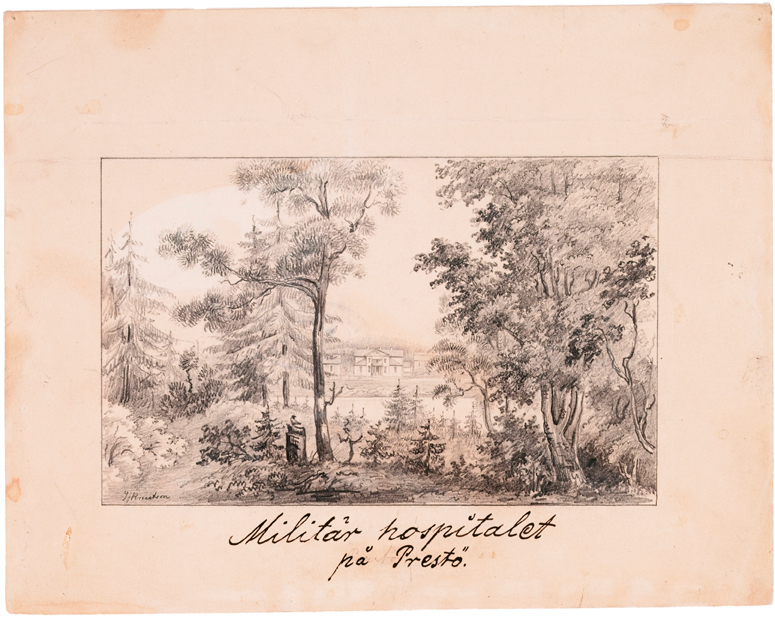 JKnutson
Militär hospitalet
på Prestö.